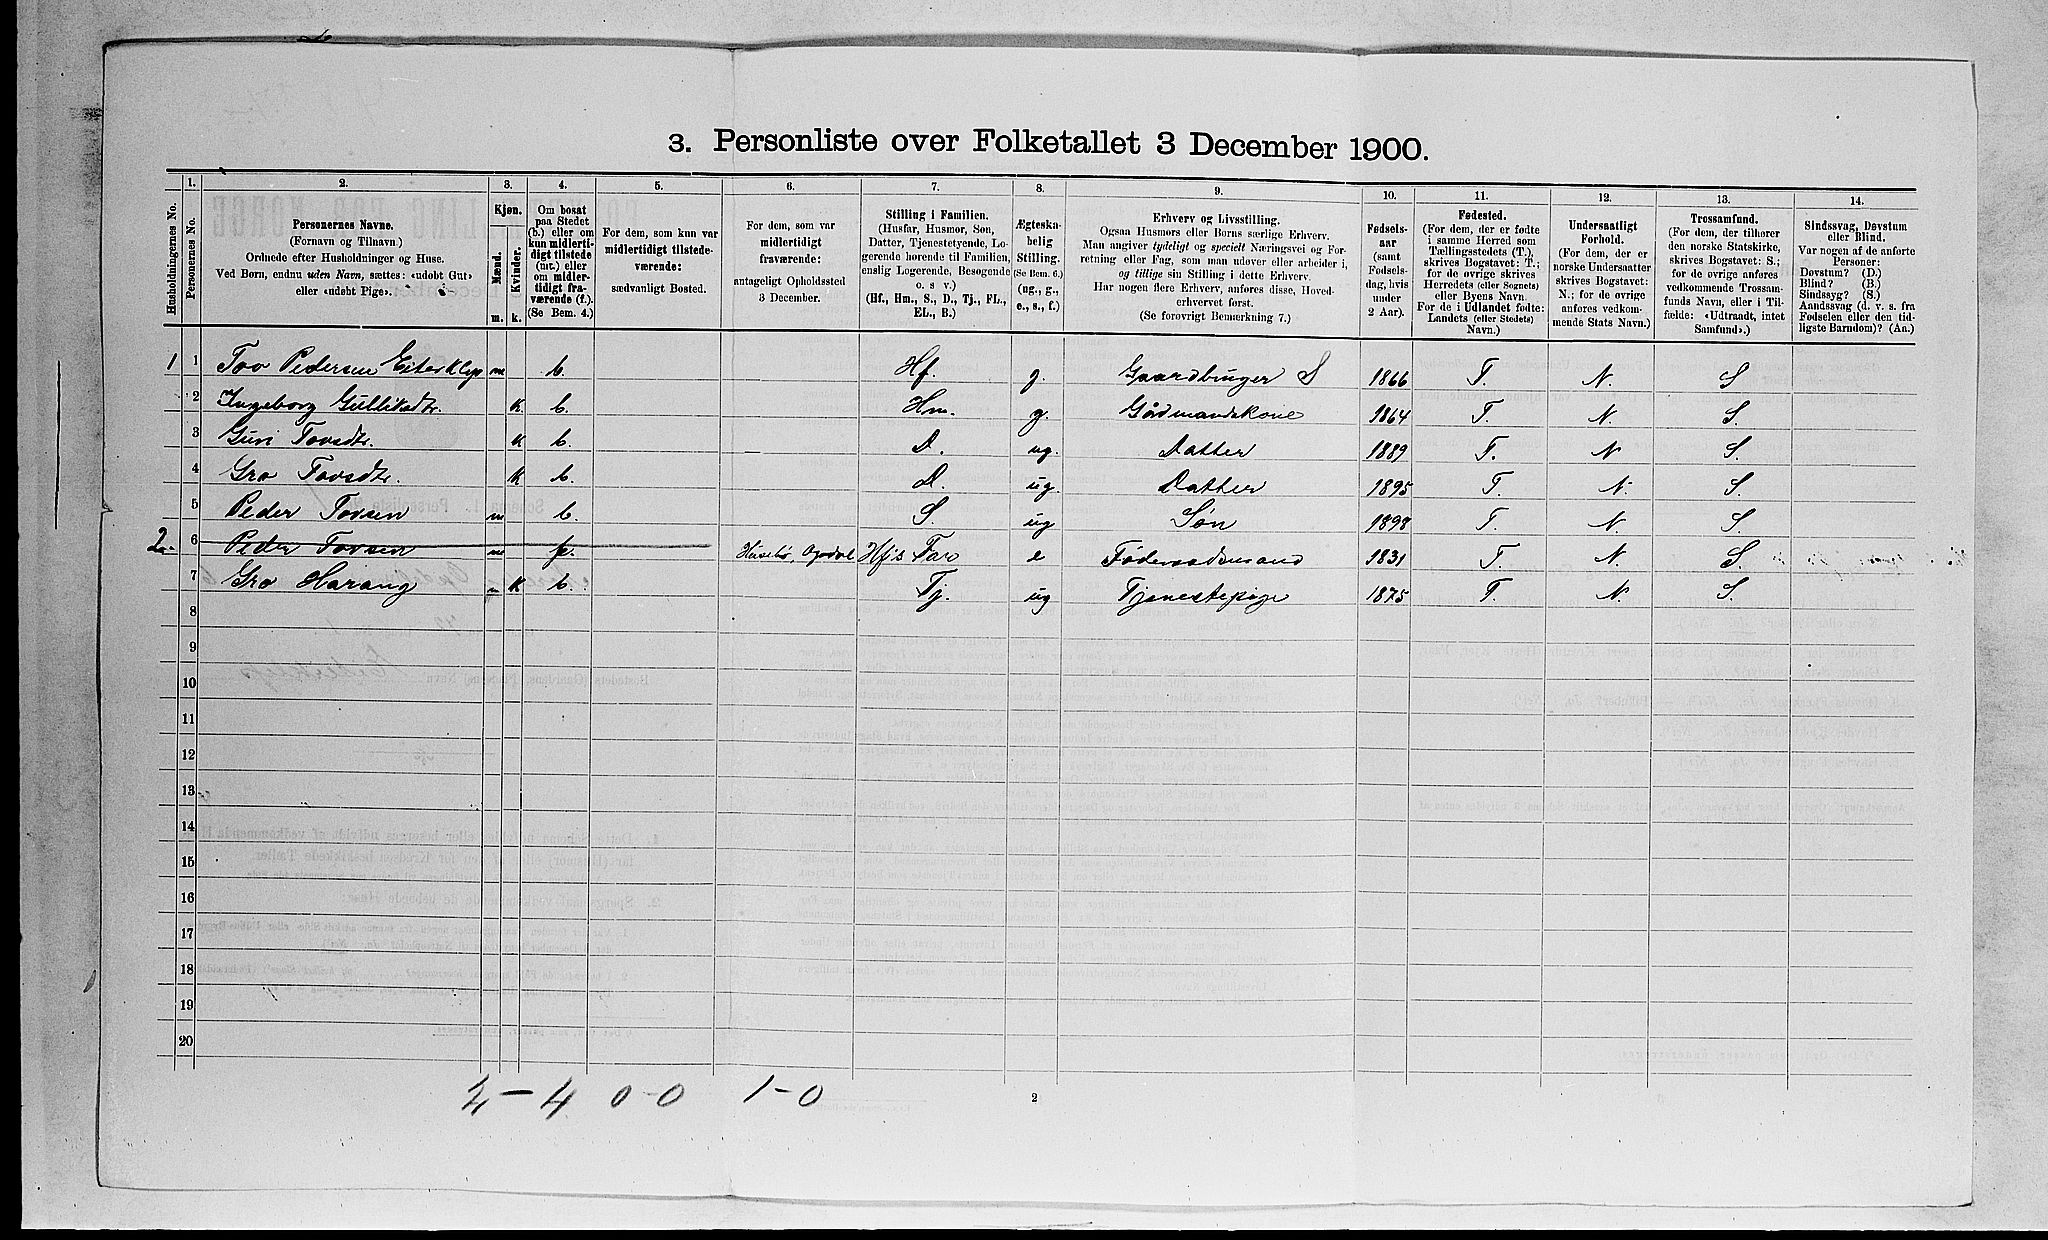 3. Personliste over Folketallet 3 December 1900.
1. 2. 3. 4. 5. 6. 7. 8. 9. 10. 11. 12. 13. 14.
Husholdningernes No.
Personernes No.
Personernes Navne.
(Fornavn og Tilnavn)
Ordnede efter Husholdninger og Huse.
Ved Børn, endnu uden Navn, sættes: «udøbt Gut»
eller «udøbt Pige».
Kjøn.
Mænd.
Kvinder.
m. k.
Om bosat
paa Stedet
(b.) eller om
kun midlerti-
digt tilstede
(mt.) eller
om midler-
tidigt fra-
værende (f.).
(Se Bem. 4.)
For dem, som kun var
midlertidigt tilstede-
værende:
sædvanligt Bosted.
For dem, som var
midlertidigt
fraværende:
antageligt Opholdssted
3 December.
Stilling i Familien.
(Husfar, Husmor, Søn,
Datter, Tjenestetyende, Lo-
gerende hørende til Familien,
enslig Logerende, Besøgende
o. s. v.)
(Hf., Hm., S., D., Tj., FL.,
EL., B.)
Ægteska-
belig
Stilling.
(Se Bem. 6.)
(ug., g.,
e., s., f.)
Erhverv og Livsstilling.
Ogsaa Husmors eller Børns særlige Erhverv.
Man angiver tydeligt og specielt Næringsvei og For-
retning eller Fag, som man udøver eller arbeider i,
og tillige sin Stilling i dette Erhverv.
Har nogen flere Erhverv, anføres disse, Hoved-
erhvervet først.
(Se forøvrigt Bemærkning 7.)
Fødsels-
aar
(samt
Fødsels-
dag, hvis
under
2 Aar).
Fødested.
(For dem, der er fødte
i samme Herred som
Tællingsstedets (T.),
skrives Bogstavet: T.;
for de øvrige skrives
Herredets (eller Sognets)
eller Byens Navn.
For de i Udlandet fødte:
Landets (eller Stedets)
Navn.)
Undersaatligt
Forhold.
(For dem, der er
norske Undersaatter
skrives Bogstavet:
N.; for de øvrige
anføres vedkom-
mende Stats Navn.)
Trossamfund.
(For dem, der tilhører
den norske Statskirke,
skrives Bogstavet: S.;
for de øvrige anføres
vedkommende Trossam-
funds Navn, eller i Til-
fælde: «Udtraadt, intet
Samfund».)
Sindssvag, Døvstum
eller Blind.
Var nogen af de anførte
Personer:
Døvstum? (D.)
Blind? (B.)
Sindssyg? (S.)
Aandssvag (d. v. s. fra
Fødselen eller den tid-
ligste Barndom)? (Aa.)
1 1 Tov Pedersen Eiterklep m b. Hf. g. Gaardbruger S 1866 T. N. S.
2 Ingeborg Gulliksdtr. k b. Hm. g. Gådmandskone 1864 T. N. S.
3 Guri Tovsdtr. k b. D. ug. Datter 1889 T. N S.
4 Gro Tovsdtr. k b. D. ug. Datter 1895 T. N. S.
5 Peder Tovsen m b. S. ug Søn 1898 T. N. S.
2. 6 Peder Tovsen m f. Husebø, Opdal Hf's Far e Føderaadsmand 1831 T. N. S.
7 Gro Harang k b. Tj. ug Tjenestepige 1875 T. N. S.
8
9
10
11
12
13
14
15
16
17
18
19
20
2 - 4 0 - 0 1 - 0
2